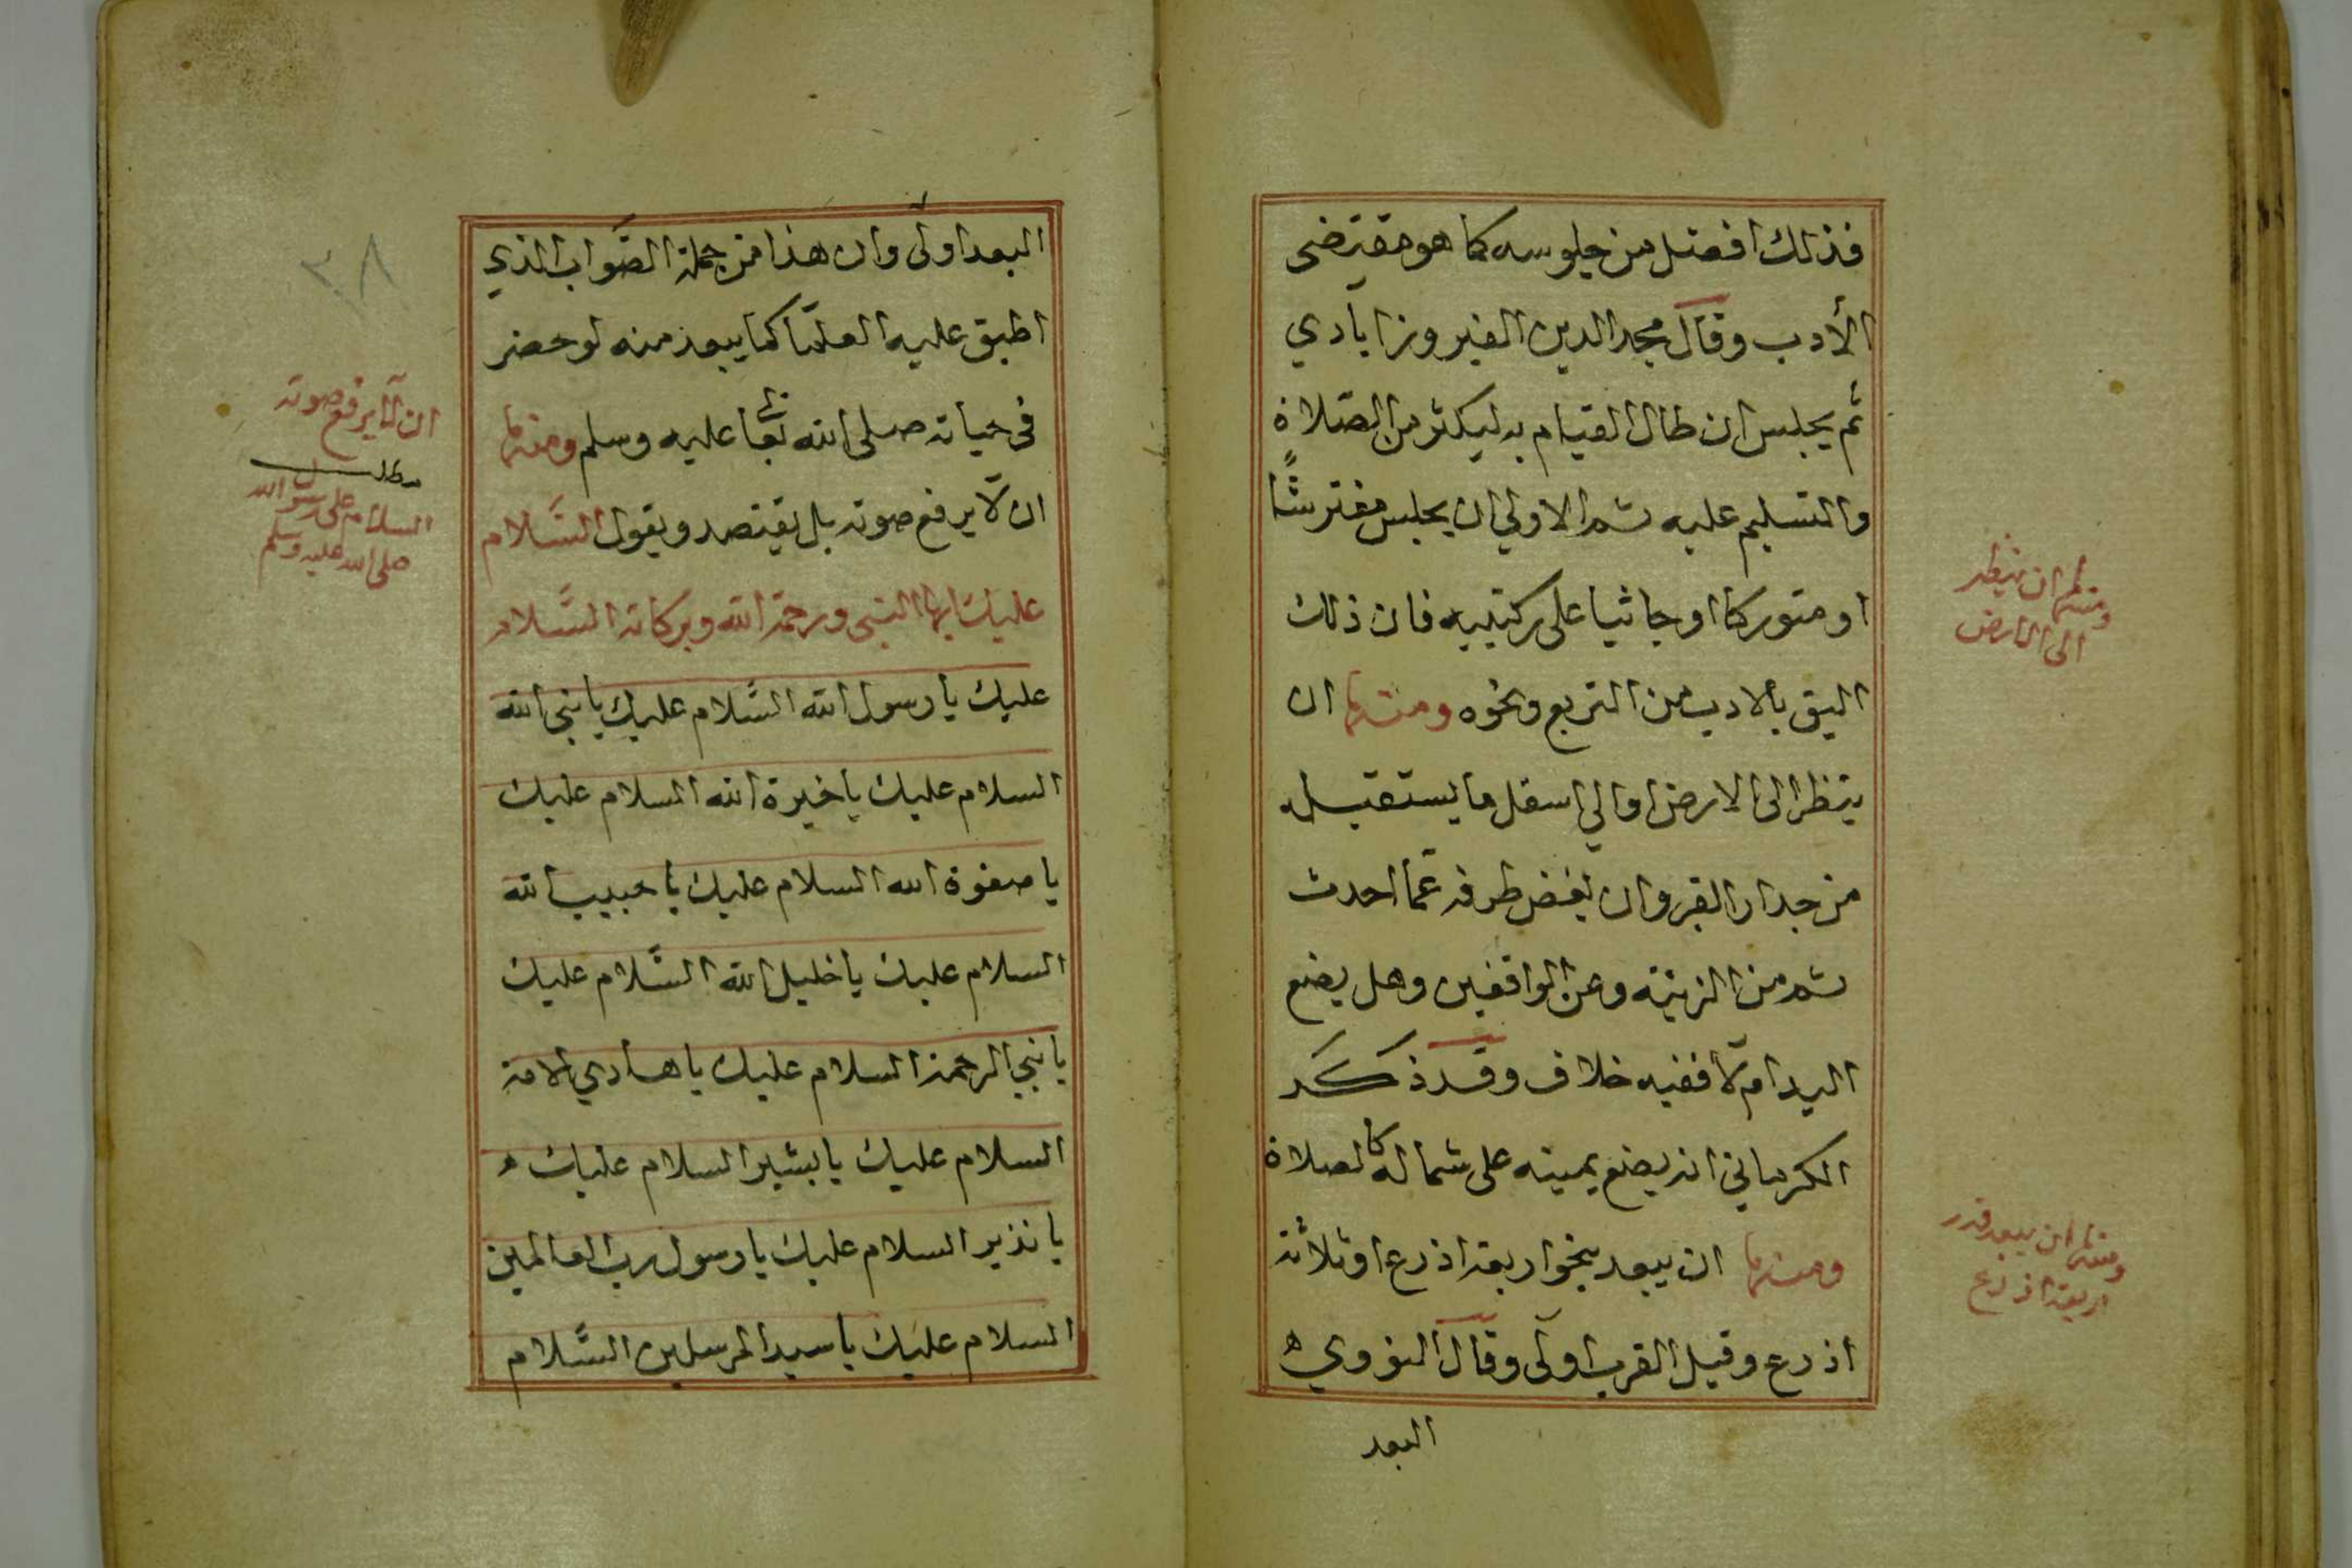 فذلك افضل من جلوسه كما هو مقتضى
الأدب وقال مجد الدين الفيروزابادي
ثم يجلس ان طال القيام به ليكثر من الصلاة
والتسليم عليه ثم الاولي ان يجلس مفترشًا
او متوركا او جاثيا على ركبتيه فان ذلك
اليق بالادب من التربع ونحوه ومنها ان
ينظر الى الارض او الي اسفل ما يستقبله
من جدار القبر وان يغض طرفه عما احدث
ثم من الزينة وعن الواقفين وهل يضع
اليد ام لا ففيه خلاف وقد ذكر
الكرماني انه يضع يمينه على شماله كالصلاة
ومنها ان يبعد بنحو اربعة اذرع او ثلاثة
اذرع وقيل القرب اولى وقال النووي
البعد
ومنها ان ينظر
الى الارض
ومنها ان يبعد قدر
اربعة اذرع
البعد اولى وان هذا من جملة الصواب الذي
اطبق عليه العلما كما يبعد منه لو حضر
في حياته صلى الله تعا عليه وسلم ومنها
ان لا يرفع صوته بل يقتصد ويقول السلام
عليك ايها النبي ورحمة الله وبركاته السلام
عليك يا رسول الله السلام عليك يا نبي الله
السلام عليك يا خيرة الله السلام عليك
يا صفوة الله السلام عليك يا حبيب الله
السلام عليك يا خليل الله السلام عليك
يا نبي الرحمة السلام عليك يا هادي الامة
السلام عليك يا بشير السلام عليك
يا نذير السلام عليك يا رسول رب العالمين
السلام عليك يا سيد المرسلين السلام
ان لا يرفع صوته
مطلب
السلام على رسول الله
صلى الله عليه وسلم
٣٨